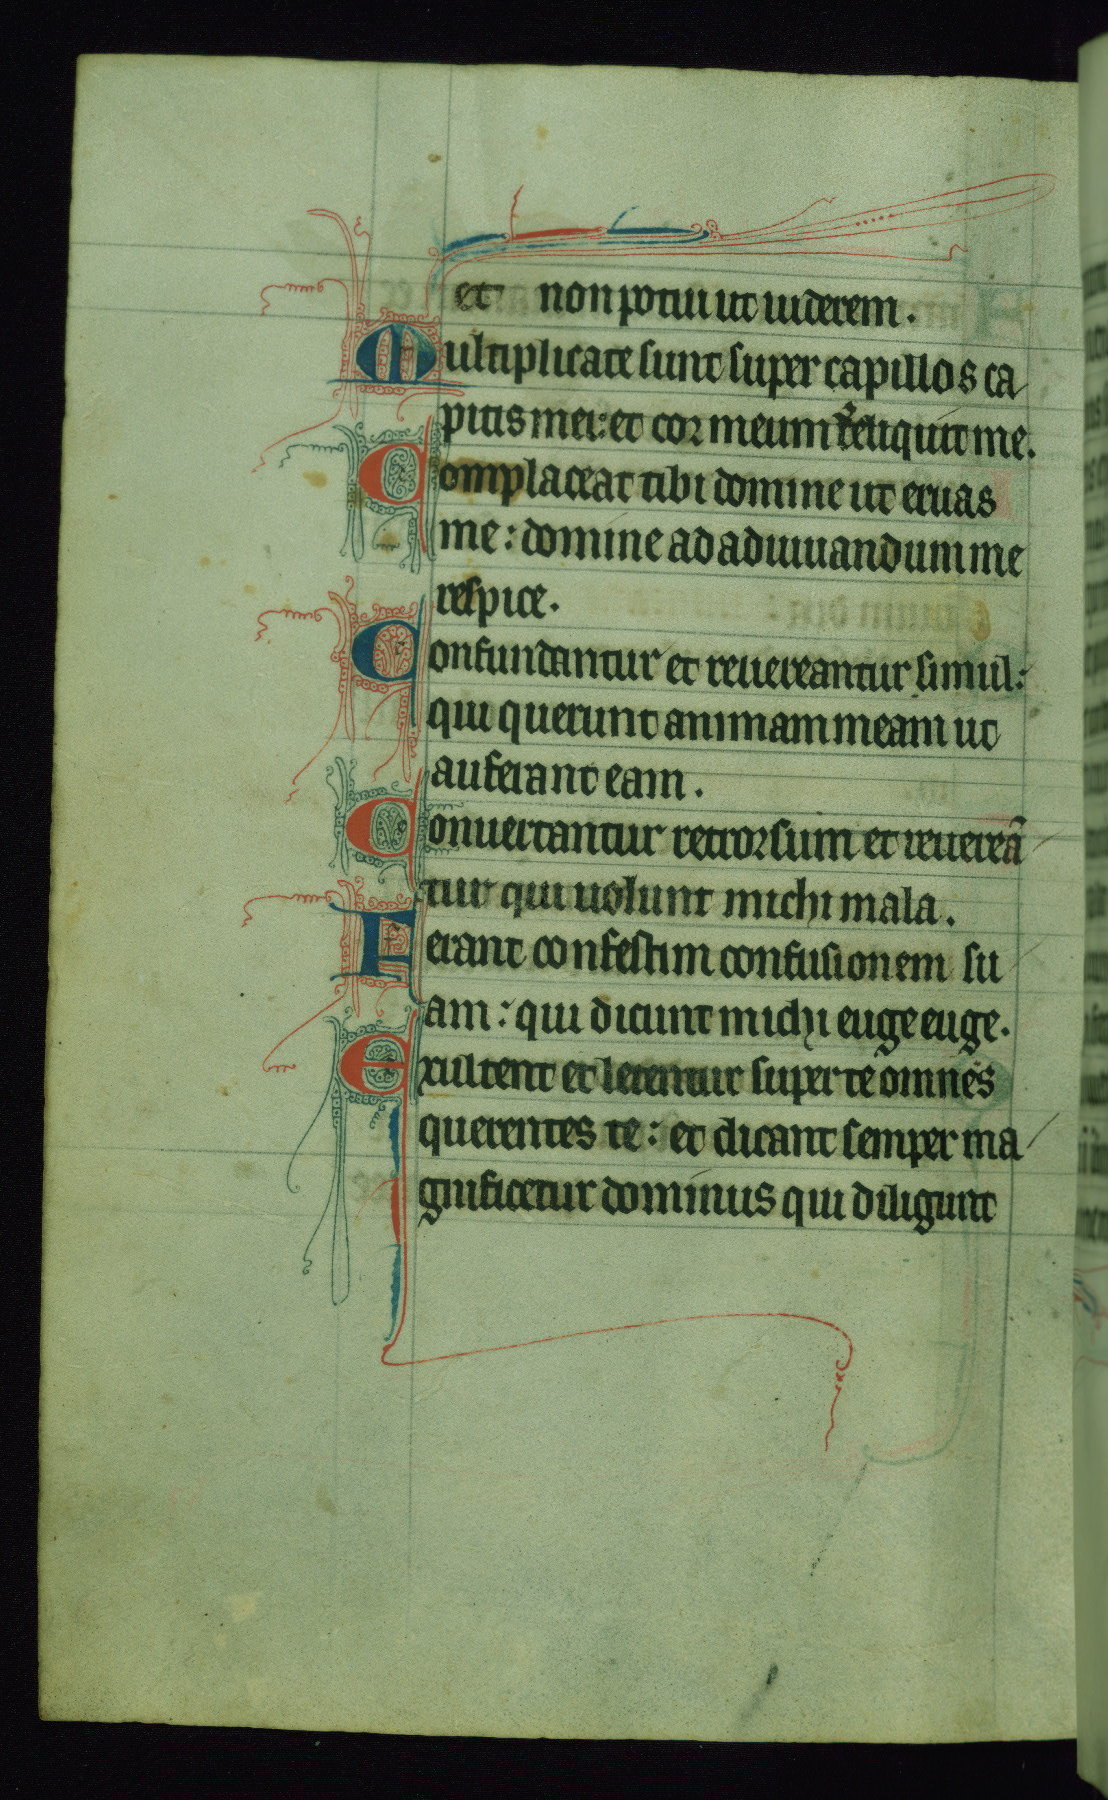 et non potui ut uiderem.
Multiplicate sunt super capillos ca
pitis mei: et cor meum reliquit me.
Complaceat tibi domine ut eruas
me: domine ad adiuuandum me
respice.
Confundantur et reuereantur simul:
qui querunt animam meam ut
auferant eam.
Conuertantur retrorsum et reuereā
tur qui uolunt michi mala.
Ferant confestim confusionem su
am: qui dicunt michi euge euge.
Exultent et letentur super te omnes
querentes te: et dicant semper ma
gnificetur dominus qui diligunt